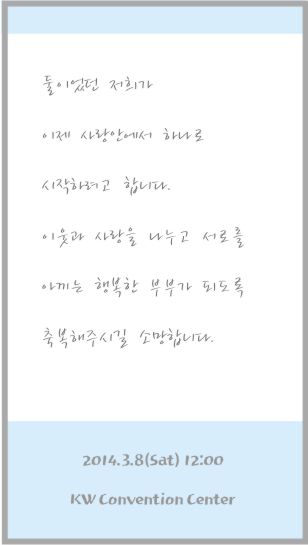 둘이었던 저희가
이제 사랑안에서 하나로
시작하려고 합니다.
이웃과 사랑을 나누고 서로를
아끼는 행복한 부부가 되도록
축복해주시길 소망합니다.
2014.3.8(Sat) 12:00
KW Convention Center